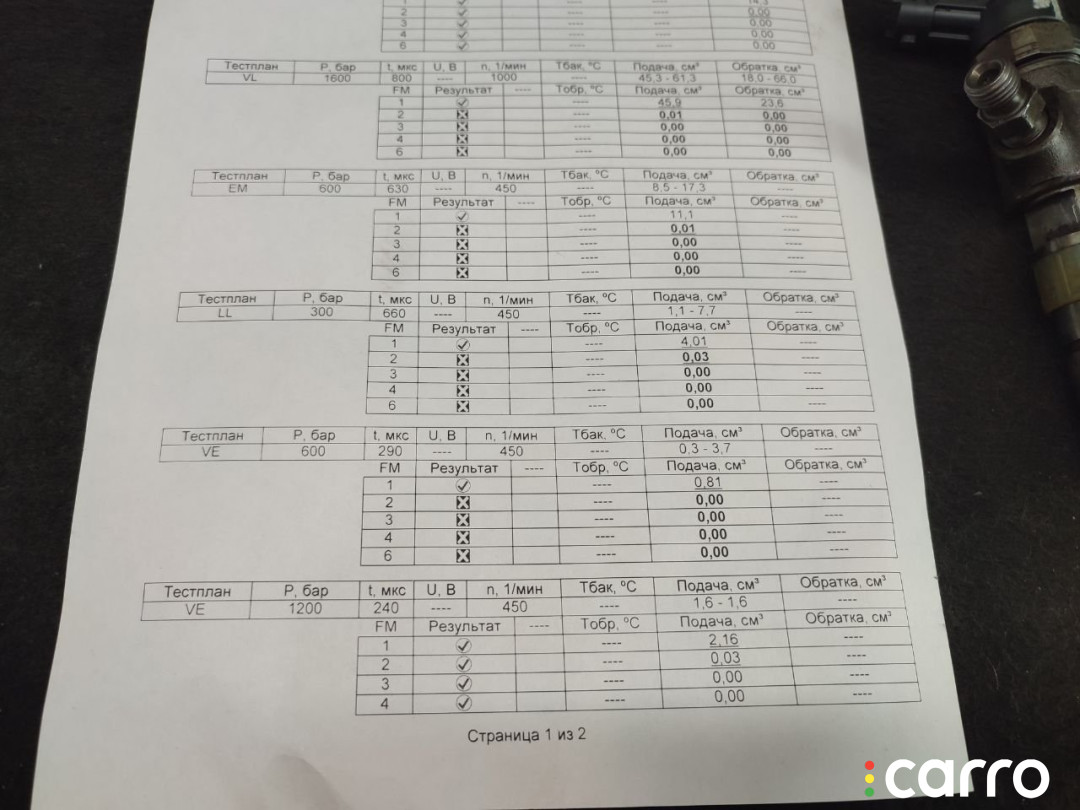 1 ---- ---- 14,3
2 ---- ---- 0,00
3 ---- ---- 0,00
4 ---- ---- 0,00
6 ---- ---- 0,00
Тестплан P, бар t, мкс U, В n, 1/мин Tбак, ºC Подача, см³ Обратка, см³
VL 1600 800 ---- 1000 ---- 45,3 - 61,3 18,0 - 66,0
FM Результат ---- Tобр, ºC Подача, см³ Обратка, см³
1 ---- 45,9 23,6
2 ---- 0,01 0,00
3 ---- 0,00 0,00
4 ---- 0,00 0,00
6 ---- 0,00 0,00
Тестплан P, бар t, мкс U, В n, 1/мин Tбак, ºC Подача, см³ Обратка, см³
EM 600 630 ---- 450 ---- 8,5 - 17,3 ----
FM Результат ---- Tобр, ºC Подача, см³ Обратка, см³
1 ---- 11,1 ----
2 ---- 0,01 ----
3 ---- 0,00 ----
4 ---- 0,00 ----
6 ---- 0,00 ----
Тестплан P, бар t, мкс U, В n, 1/мин Tбак, ºC Подача, см³ Обратка, см³
LL 300 660 ---- 450 ---- 1,1 - 7,7 ----
FM Результат ---- Tобр, ºC Подача, см³ Обратка, см³
1 ---- 4,01 ----
2 ---- 0,03 ----
3 ---- 0,00 ----
4 ---- 0,00 ----
6 ---- 0,00 ----
Тестплан P, бар t, мкс U, В n, 1/мин Tбак, ºC Подача, см³ Обратка, см³
VE 600 290 ---- 450 ---- 0,3 - 3,7 ----
FM Результат ---- Tобр, ºC Подача, см³ Обратка, см³
1 ---- 0,81 ----
2 ---- 0,00 ----
3 ---- 0,00 ----
4 ---- 0,00 ----
6 ---- 0,00 ----
Тестплан P, бар t, мкс U, В n, 1/мин Tбак, ºC Подача, см³ Обратка, см³
VE 1200 240 ---- 450 ---- 1,6 - 1,6 ----
FM Результат ---- Tобр, ºC Подача, см³ Обратка, см³
1 ---- 2,16 ----
2 ---- 0,03 ----
3 ---- 0,00 ----
4 ---- 0,00 ----
Страница 1 из 2
carro